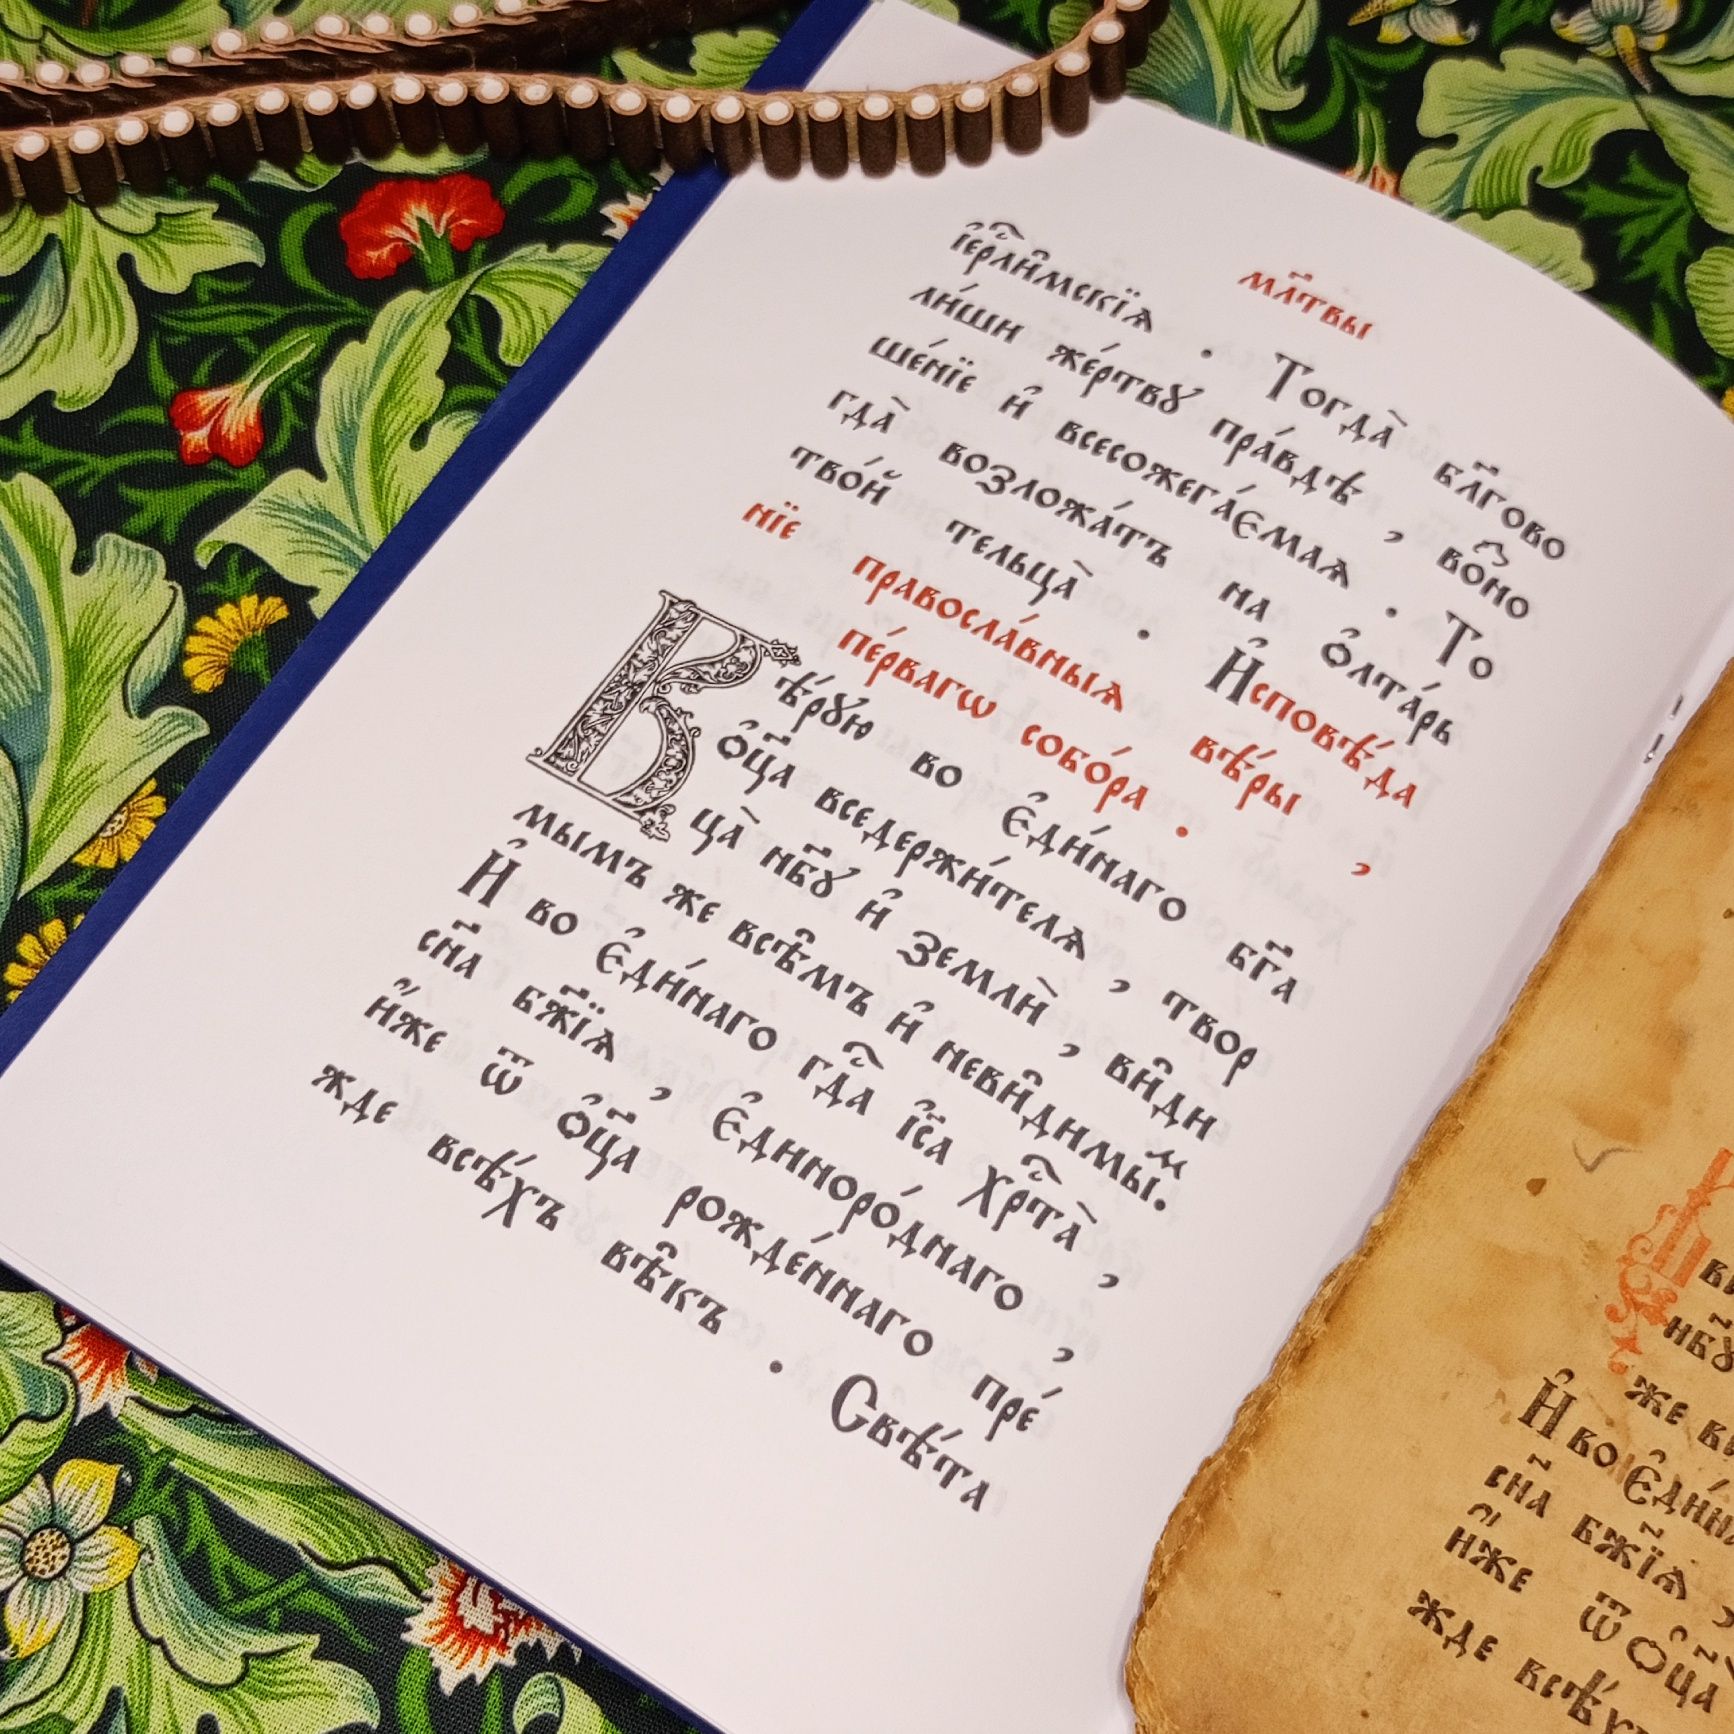 мл҃твы
і҆ерⷭ҇ли̑мскїѧ . Тогда̀ бл҃гово
ли́ши же́ртвꙋ пра́вдѣ , во̑зно
ше́нїе и҆ всесожега́ємаѧ . То
гда̀ возложа́тъ на о҆лта́рь
тво́й тельца̀ . И҆сповѣ́да
нїе правосла́вныѧ вѣ́ры ,
пе́рвагѡ собо́ра .
Вѣ́рꙋю во є҆ди́наго бг҃а
о҆ц҃а вседержи́телѧ , твор
ца̀ нб҃ꙋ и҆ землѝ , ви̑ди
мымъ же всѣ̑мъ и҆ неви̑димыⷨ.
И҆ во є҆ди́наго гдⷭ҇а і҆с҃а хрⷭ҇та̀ ,
сн҃а бж҃їѧ , є҆диноро́днаго ,
и҆́же ѿ о҆ц҃а рожде́ннаго пре́
жде всѣ́хъ вѣ̑къ . Свѣ́та
нб҃ꙋ
же
И҆ во є҆ди́н
сн҃а бж҃їѧ ,
и҆́же ѿ о҆ц҃а
жде всѣ́х